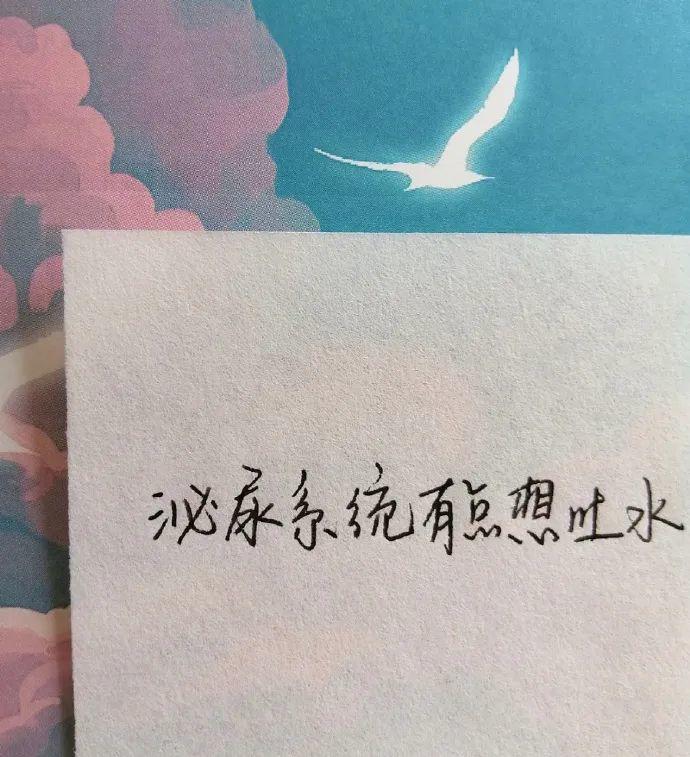 泌尿系统有点想吐水